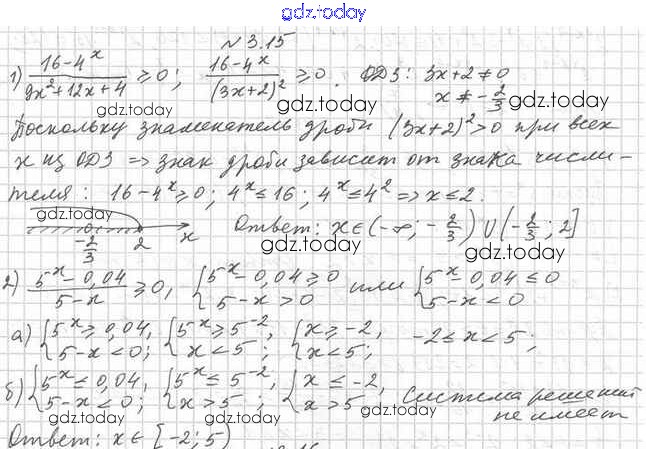 gdz.today
№ 3.15
1) (16-4^x)/(9x²+12x+4) ≥ 0; (16-4^x)/(3x+2)² ≥ 0. ОДЗ: 3x+2≠0
x ≠ -2/3
gdz.today gdz.today gdz.today
Поскольку знаменатель дроби (3x+2)²>0 при всех
x из ОДЗ => знак дроби зависит от знака числи-
gdz.today gdz.today gdz.today
теля: 16-4^x≥0; 4^x≤16; 4^x≤4² => x≤2.
gdz.today
-2/3 2 x Ответ: x∈(-∞; -2/3) ∪ (-2/3; 2]
gdz.today gdz.today
2) (5^x-0,04)/(5-x) ≥ 0, {5^x-0,04≥0 5-x>0 или {5^x-0,04≤0 5-x<0
gdz.today gdz.today gdz.today
а) {5^x≥0,04, 5-x<0; {5^x≥5^-2, x<5; {x≥-2, x<5; -2≤x<5;
gdz.today gdz.today gdz.today
б) {5^x≤0,04, 5-x<0; {5^x≤5^-2, x>5; {x≤-2, x>5 система решений
не имеет
gdz.today gdz.today gdz.today
Ответ: x∈[-2; 5)